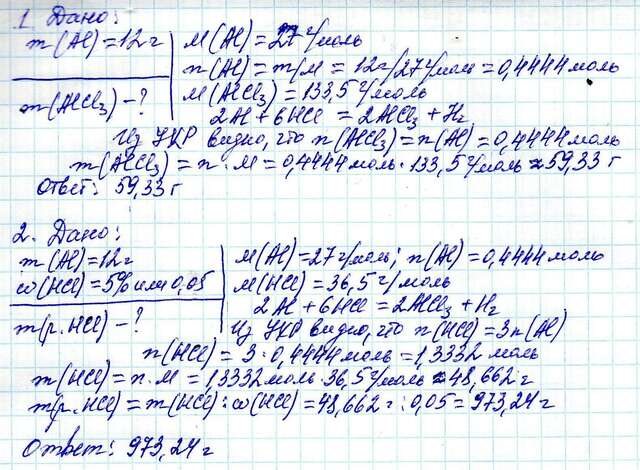 1 Дано:
m(Al)=12г
m(AlCl₃)-?
M(Al)=27г/моль
n(Al)=m/M=12г/27г/моль=0,4444моль
M(AlCl₃)=133,5г/моль
2Al+6HCl=2AlCl₃+H₂
Из УХР видно, что n(AlCl₃)=n(Al)=0,4444моль
m(AlCl₃)=n·M=0,4444моль·133,5г/моль≈59,33 г
Ответ: 59,33 г
2. Дано:
m(Al)=12г
ω(HCl)=5% или 0,05
m(р.HCl)-?
M(Al)=27г/моль; n(Al)=0,4444моль
M(HCl)=36,5г/моль
2Al+6HCl=2AlCl₃+H₂
Из УХР видно, что n(HCl)=3n(Al)
n(HCl)=3·0,4444моль=1,3332 моль
m(HCl)=n·M=1,3332моль·36,5г/моль≈48,662г
m(р.HCl)=m(HCl):ω(HCl)=48,662г:0,05=973,24г
Ответ: 973,24г